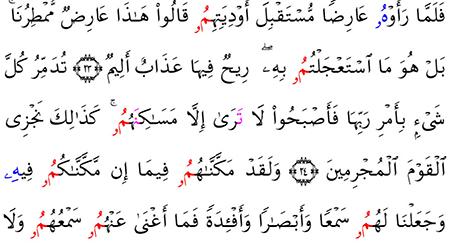 فَلَمَّا رَأَوْهُۥ عَارِضًا مُّسْتَقْبِلَ أَوْدِيَتِهِمُۥ قَالُوا۟ هَـٰذَا عَارِضٌ مُّمْطِرُنَا ۚ
بَلْ هُوَ مَا ٱسْتَعْجَلْتُمُۥ بِهِۦ ۖ رِيحٌ فِيهَا عَذَابٌ أَلِيمٌ ٢٣ تُدَمِّرُ كُلَّ
شَىْءِۭ بِأَمْرِ رَبِّهَا فَأَصْبَحُوا۟ لَا تَرَىٰ إِلَّا مَسَـٰكِنَهُمُۥ ۚ كَذَٰلِكَ نَجْزِى
ٱلْقَوْمَ ٱلْمُجْرِمِينَ ٢٤ وَلَقَدْ مَكَّنَّـٰهُمُۥ فِيمَا إِن مَّكَّنَّـٰكُمُۥ فِيهِۦ
وَجَعَلْنَا لَهُمُۥ سَمْعًا وَأَبْصَـٰرًا وَأَفْـِٔدَةً فَمَا أَغْنَىٰ عَنْهُمُۥ سَمْعُهُمُۥ وَلَا